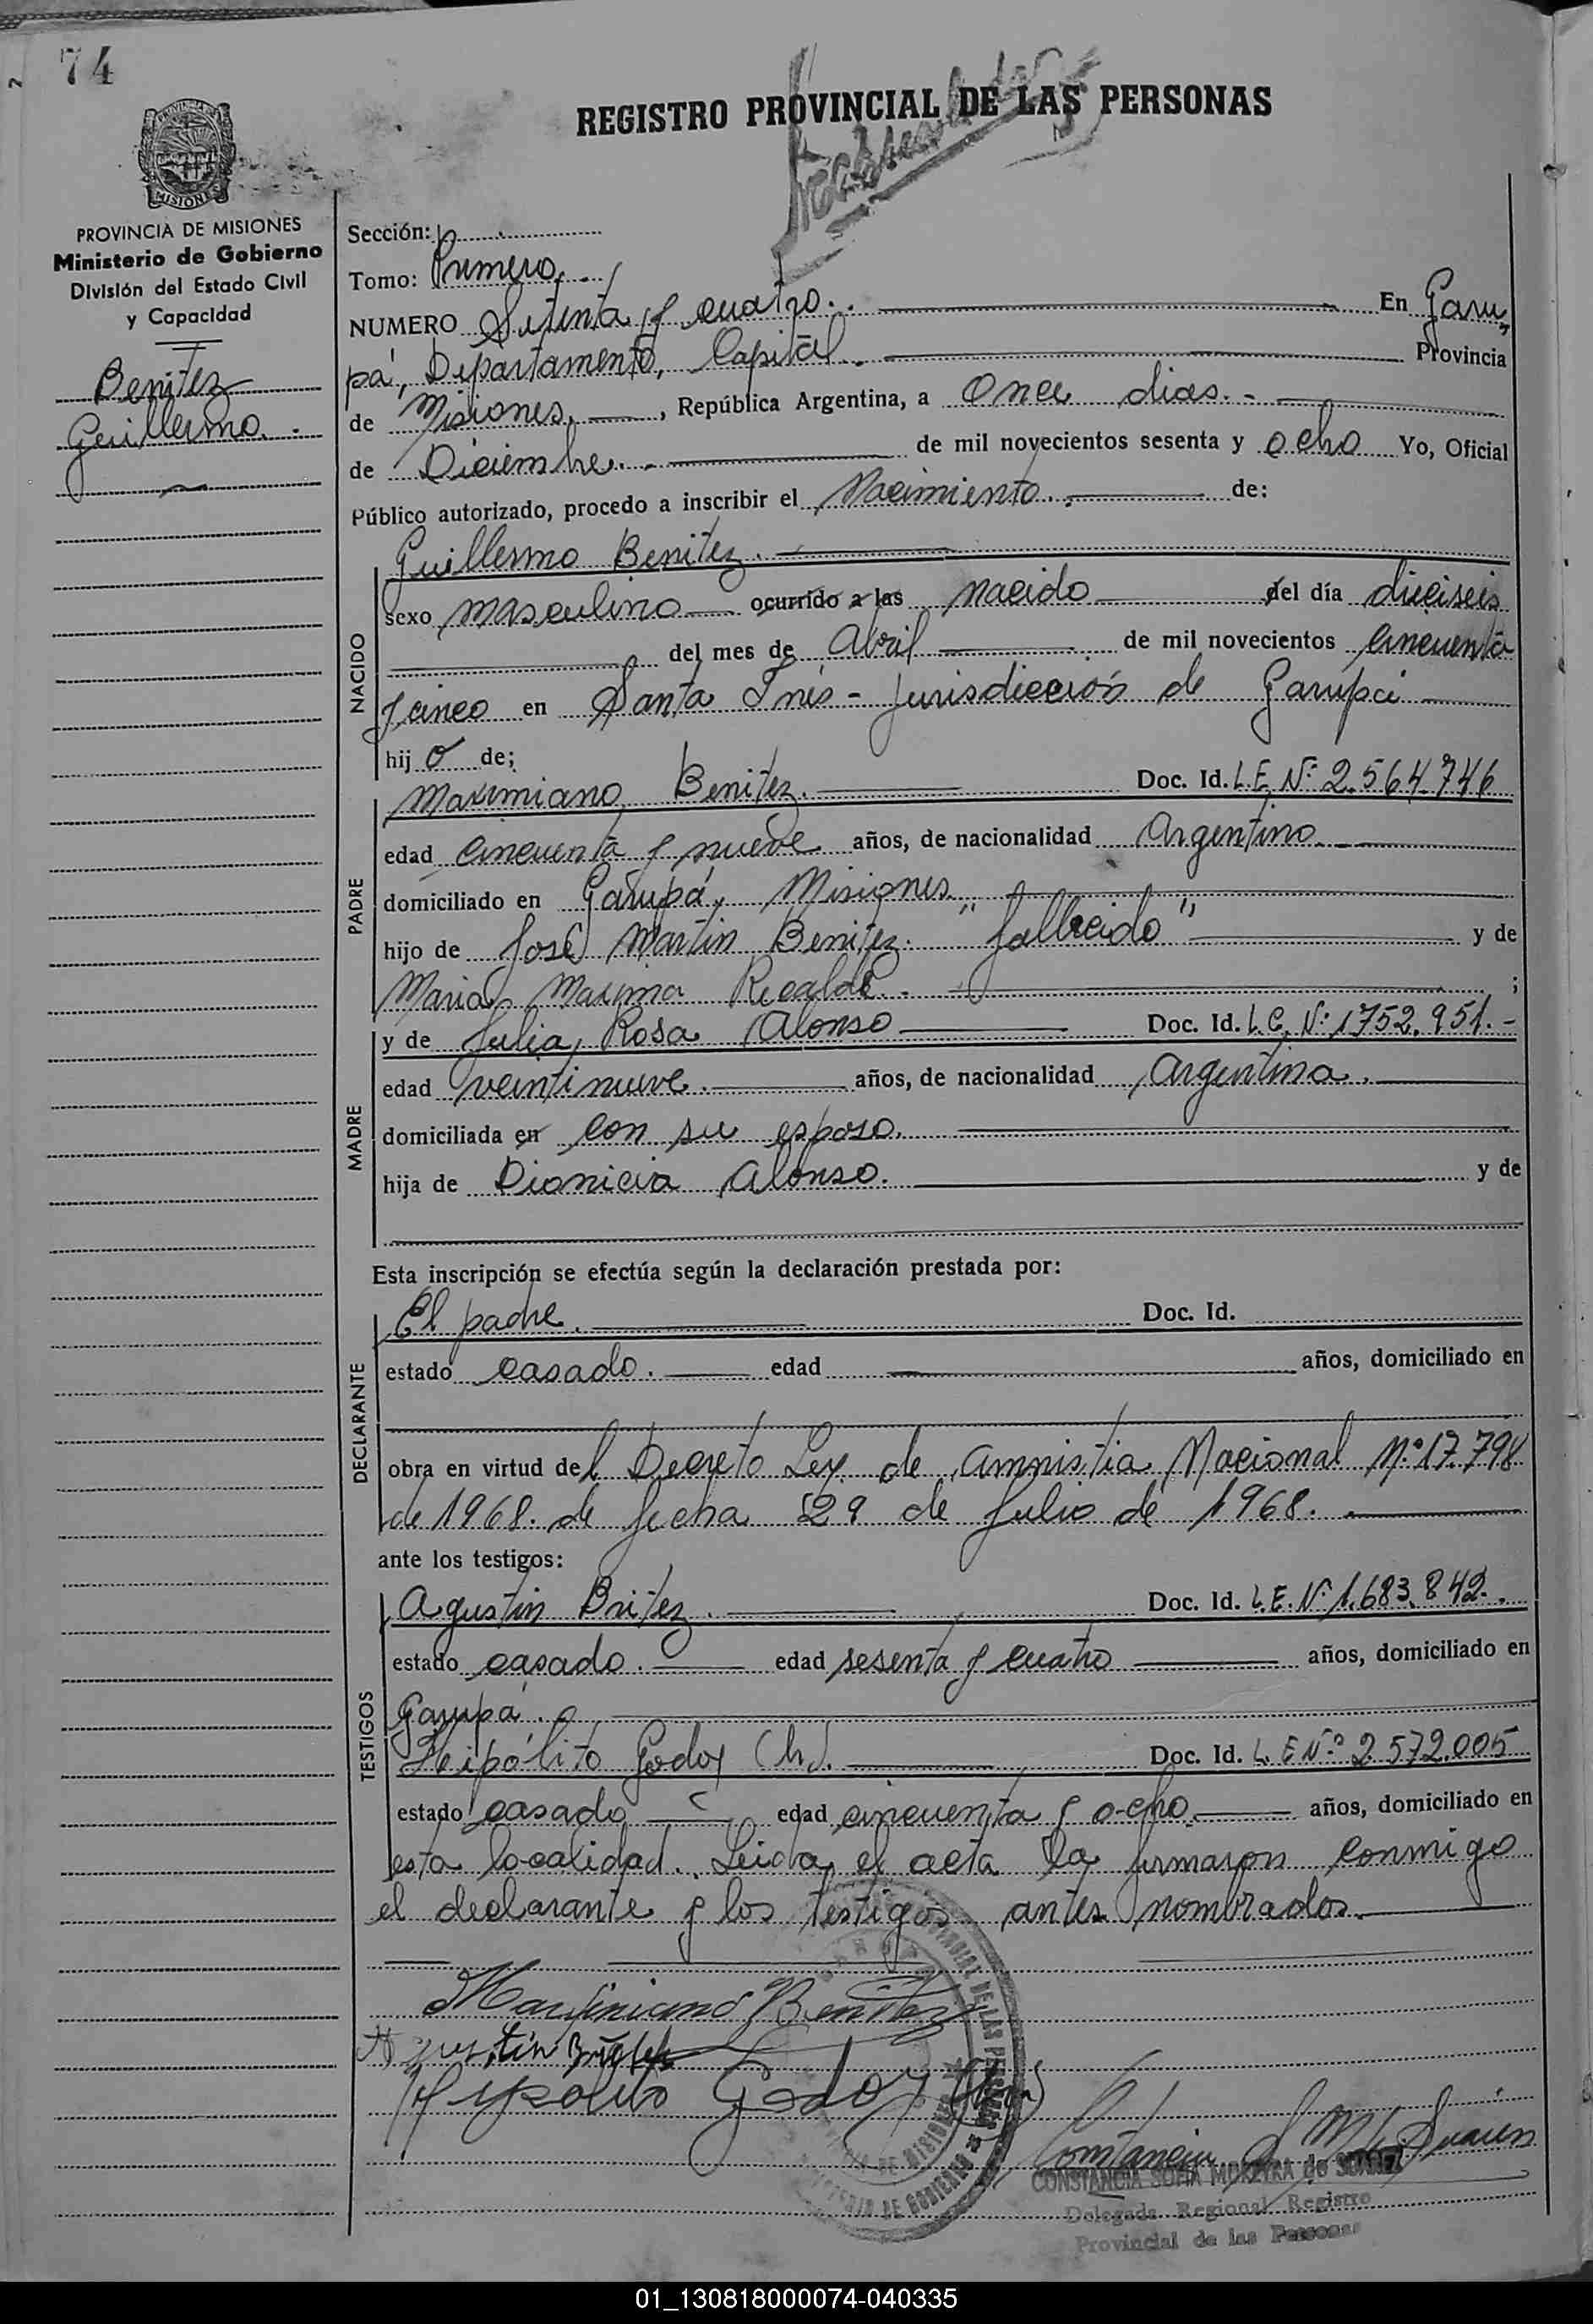 74
REGISTRO PROVINCIAL DE LAS PERSONAS
MISIONES
PROVINCIA DE MISIONES
Ministerio de Gobierno
División del Estado Civil
y Capacidad
Benitez
Guillermo.
Sección:
Tomo: Primero
NUMERO Setenta y cuatro. En Garu
pá, Departamento, Capital. Provincia
de Misiones, , República Argentina, a Once dias.-
de Diciembre.- de mil novecientos sesenta y ocho Yo, Oficial
Público autorizado, procedo a inscribir el Nacimiento. de:
Guillermo Benitez.
NACIDO
sexo masculino ocurrido a las nacido del día dieciseis
del mes de Abril de mil novecientos cincuenta
y cinco en Santa Inés - Jurisdicción de Garupá
hijo de;
PADRE
Maximiano Benitez. Doc. Id. L.E. Nº 2.564.746
edad cincuenta y nueve años, de nacionalidad Argentino.
domiciliado en Garupá, Misiones
hijo de José Martin Benitez. "fallecido" y de
Maria Maxima Recalde.- ;
MADRE
y de Julia Rosa Alonso Doc. Id. L.C. Nº 1752.951.-
edad veintinueve. años, de nacionalidad Argentina.
domiciliada en con su esposo.
hija de Dionicia Alonso. y de
Esta inscripción se efectúa según la declaración prestada por:
DECLARANTE
El padre. Doc. Id.
estado casado. edad años, domiciliado en
obra en virtud del Decreto Ley de Amnistia Nacional Nº 17.798
de 1968. de fecha 29 de Julio de 1968.
ante los testigos:
TESTIGOS
Agustin Britez. Doc. Id. L.E. Nº 1.683.842.
estado casado. edad sesenta y cuatro años, domiciliado en
Garupá.
Hipólito Godoy (h). Doc. Id. L.E Nº 2.572.005
estado casado edad cincuenta y ocho años, domiciliado en
esta localidad. Leida el acta la firmaron conmigo
el declarante y los testigos antes nombrados.
Maximiano Benitez
Agustin Britez
Hipolito Godoy (h)
CONSTANCIA SOFIA MOREYRA de SUAREZ
Delegada Regional Registro
Provincial de las Personas
01_130818000074-040335